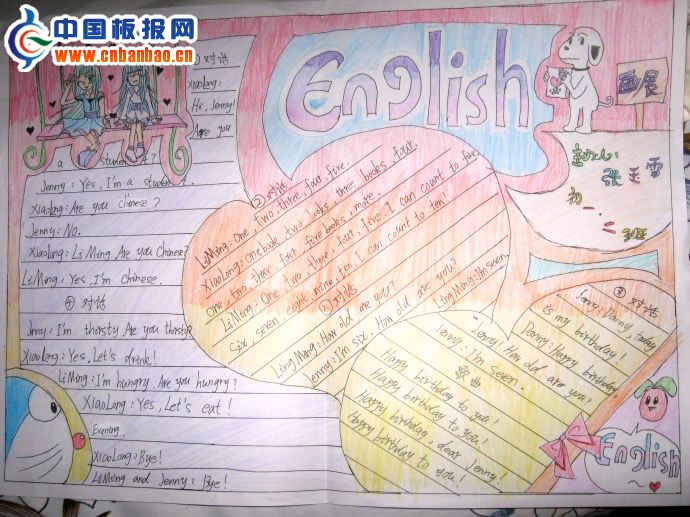 中国板报网
www.cnbanbao.cn
English
画展
主办人:
张玉雪
初一
班
① 对话
Xiaolong:
Hi, Jenny!
Are you
a student?
Jenny: Yes, I'm a student.
Xiaolong: Are you Chinese?
Jenny: No.
Xiaolong: Li Ming, Are you Chinese?
Li Ming: Yes, I'm Chinese.
④ 对话
Jenny: I'm thirsty, Are you thirsty?
Xiaolong: Yes, Let's drink!
Li Ming: I'm hungry, Are you hungry?
XiaoLong: Yes, Let's eat!
Evening,
XiaoLong: Bye!
LiMing and Jenny: Bye!
② 对话
LiMing: One, two, three, four, five.
XiaoLong: One book, two books, three books, four,
one, two, three, four, five books, more.
LiMing: One, two, three, four, five, I can count to five.
six, seven, eight, none, ten. I can count to ten
对话
Long Mang: How old are you?
Jenny: I'm six. How old are you?
Long Mang: I'm seven.
③ 对话
Jenny: Danny, today
is my birthday!
Danny: Happy birthday
Jenny, How old are you?
Jenny: I'm seven.
歌曲
Happy birthday to you!
Happy birthday to you!
Happy birthday, dear Jenny!
Happy birthday to you!
English